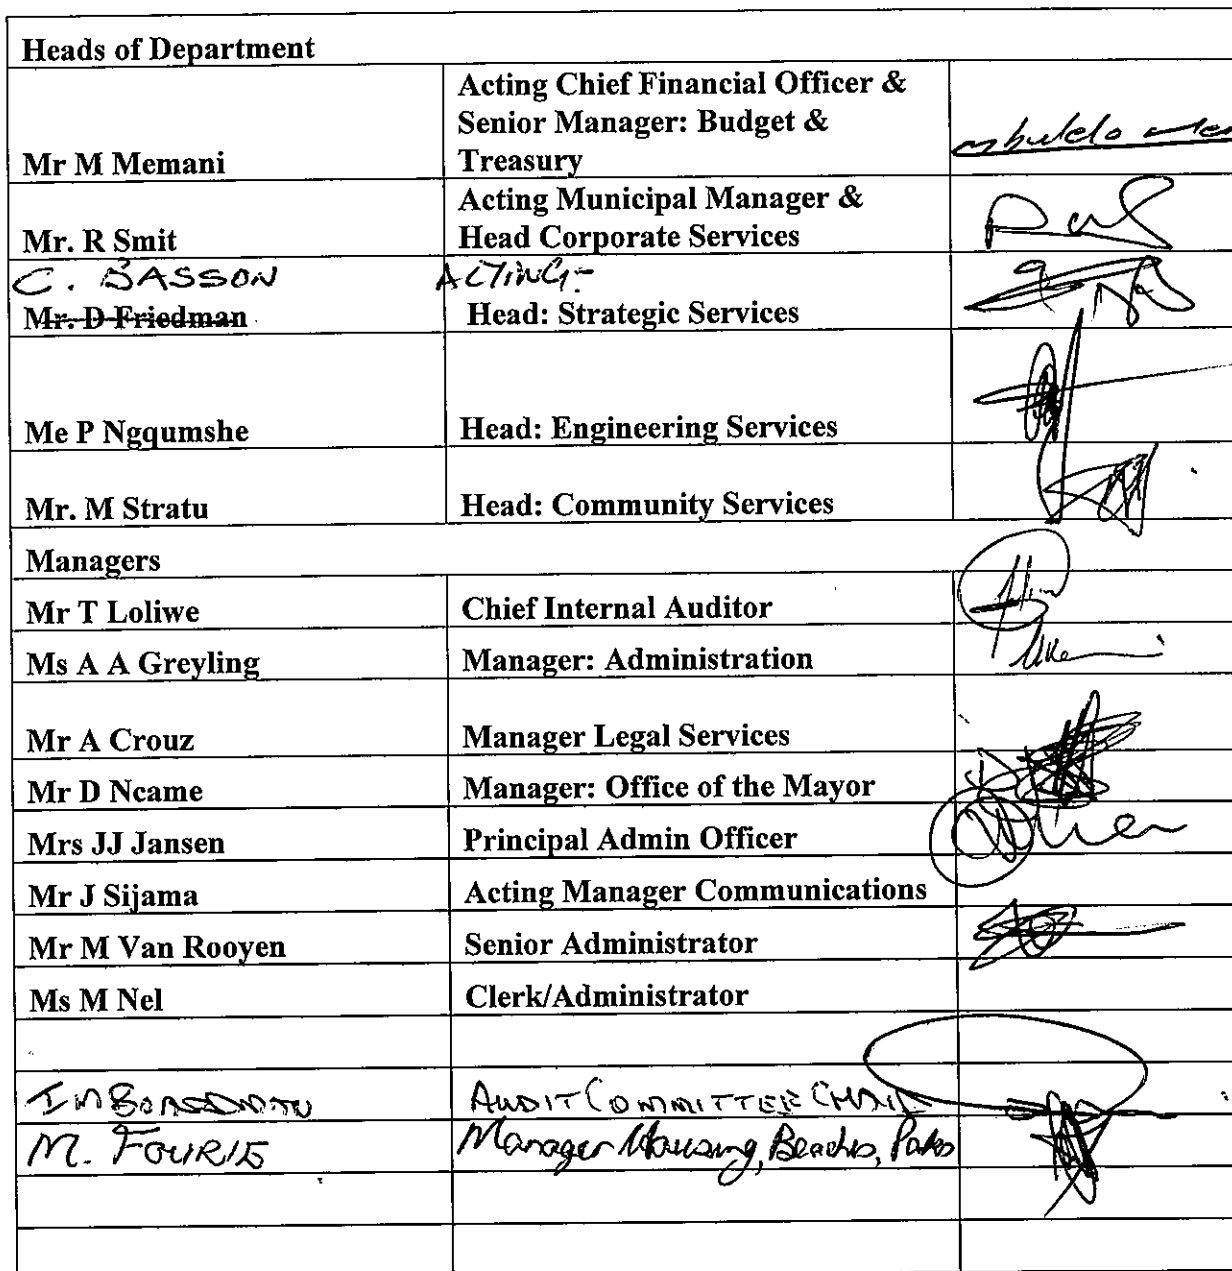 Heads of Department
Acting Chief Financial Officer &
Senior Manager: Budget &
Mr M Memani Treasury
Acting Municipal Manager &
Mr. R Smit Head Corporate Services
C. BASSON ACTING:-
Mr. D Friedman Head: Strategic Services
Me P Ngqumshe Head: Engineering Services
Mr. M Stratu Head: Community Services
Managers
Mr T Loliwe Chief Internal Auditor
Ms A A Greyling Manager: Administration
Mr A Crouz Manager Legal Services
Mr D Ncame Manager: Office of the Mayor
Mrs JJ Jansen Principal Admin Officer
Mr J Sijama Acting Manager Communications
Mr M Van Rooyen Senior Administrator
Ms M Nel Clerk/Administrator
AUDIT COMMITTEE CHAIR
M. FOURIE Manager Housing, Beaches, Parks